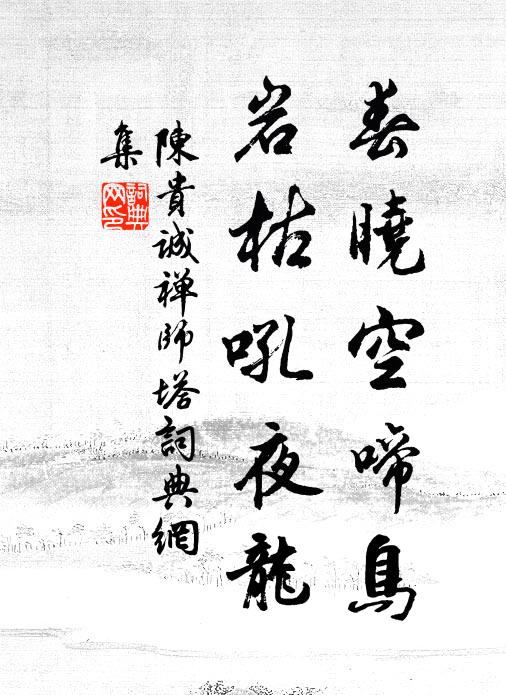 春曉空啼鳥
岩枯吼夜龍
陳貴誠禅師塔詞典網
集
詞典
网印